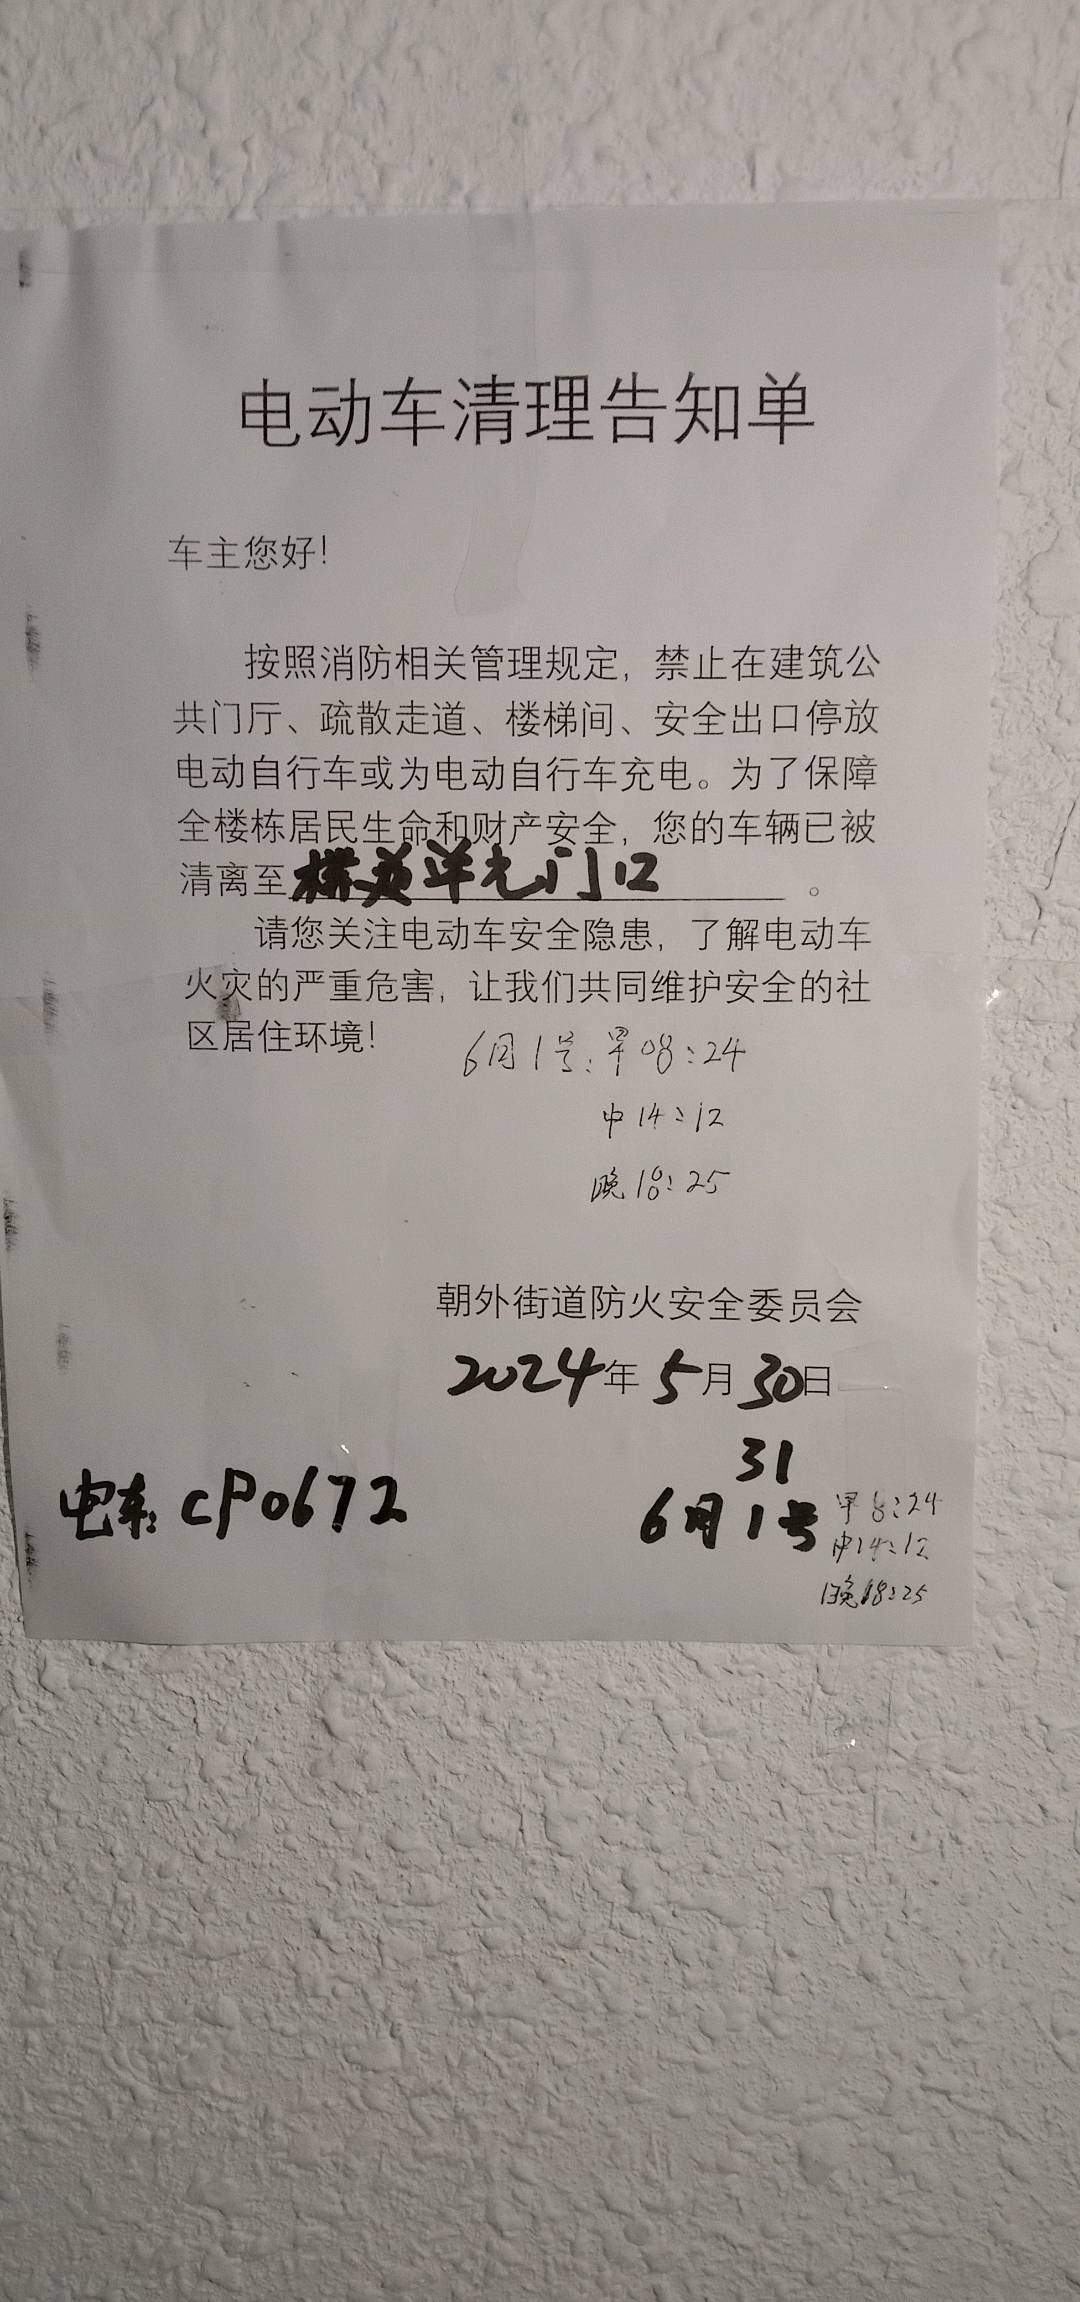 电动车清理告知单
车主您好！
按照消防相关管理规定，禁止在建筑公
共门厅、疏散走道、楼梯间、安全出口停放
电动自行车或为电动自行车充电。为了保障
全楼栋居民生命和财产安全，您的车辆已被
清离至 单元门口 。
请您关注电动车安全隐患，了解电动车
火灾的严重危害，让我们共同维护安全的社
区居住环境！
6月1号：早08:24
中14:12
晚18:25
朝外街道防火安全委员会
2024年5月30日
31
电车：CP0672
6月1号
早8:24
中14:12
晚18:25